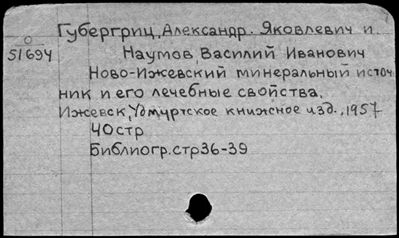 Губергриц, Александр. Яковлевич и.
О
51694
Наумов Василий Иванович
Ново-Ижевский минеральный источ
ник и его лечебные свойства.
Ижевск, Удмуртское книжное изд., 1957
40стр
Библиогр.стр36-39